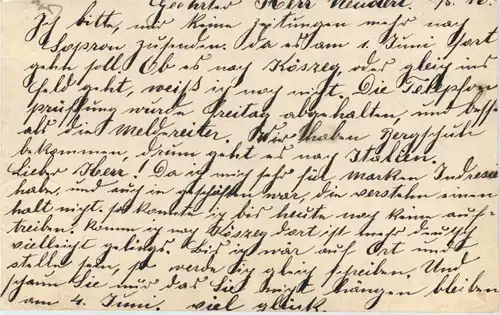 Geehrter Herr Neudert. 18.
Ich bitte, mir keine Zeitungen mehr nach
Sopron zusenden. da es am 1. Juni fort
gehn soll. Ob es nach Köszeg, oder gleich ins
Feld geht, weiß ich noch nicht. Die Telephon
prüfung wurde Freitag abgehalten, und besser
als die Meldereiter. Wir haben Bergschuh
bekommen, drum geht es nach Italien.
Lieber Herr! Da ich mich sehr für Marken
habe, und auch in geschäften war, die verstehn einen
halt nicht, so konnte ich bis heute noch keine auf-
treiben. Komm ich nach Köszeg dort ist mehr deutsch
vielleicht gelingts. Bis ich war auf Ort und
stelle sein, so werde ich gleich schreiben. Und
schaun Sie mir das Sie nicht hängen bleiben
am 4. Juni. viel glück.